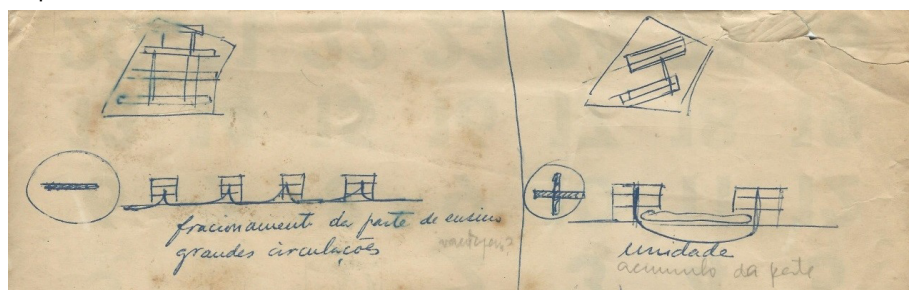 fracionamento da parte de ensino
grandes circulações
unidade
acumulo da parte